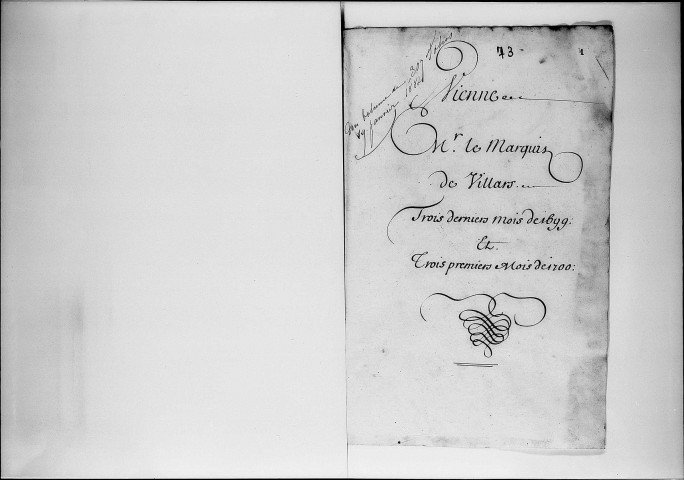 73
1
Ce volume a 307 folios
9 janvier 1882
Vienne
Mr. le Marquis
de Villars
Trois derniers Mois de 1699.
Et.
Trois premiers Mois de 1700: